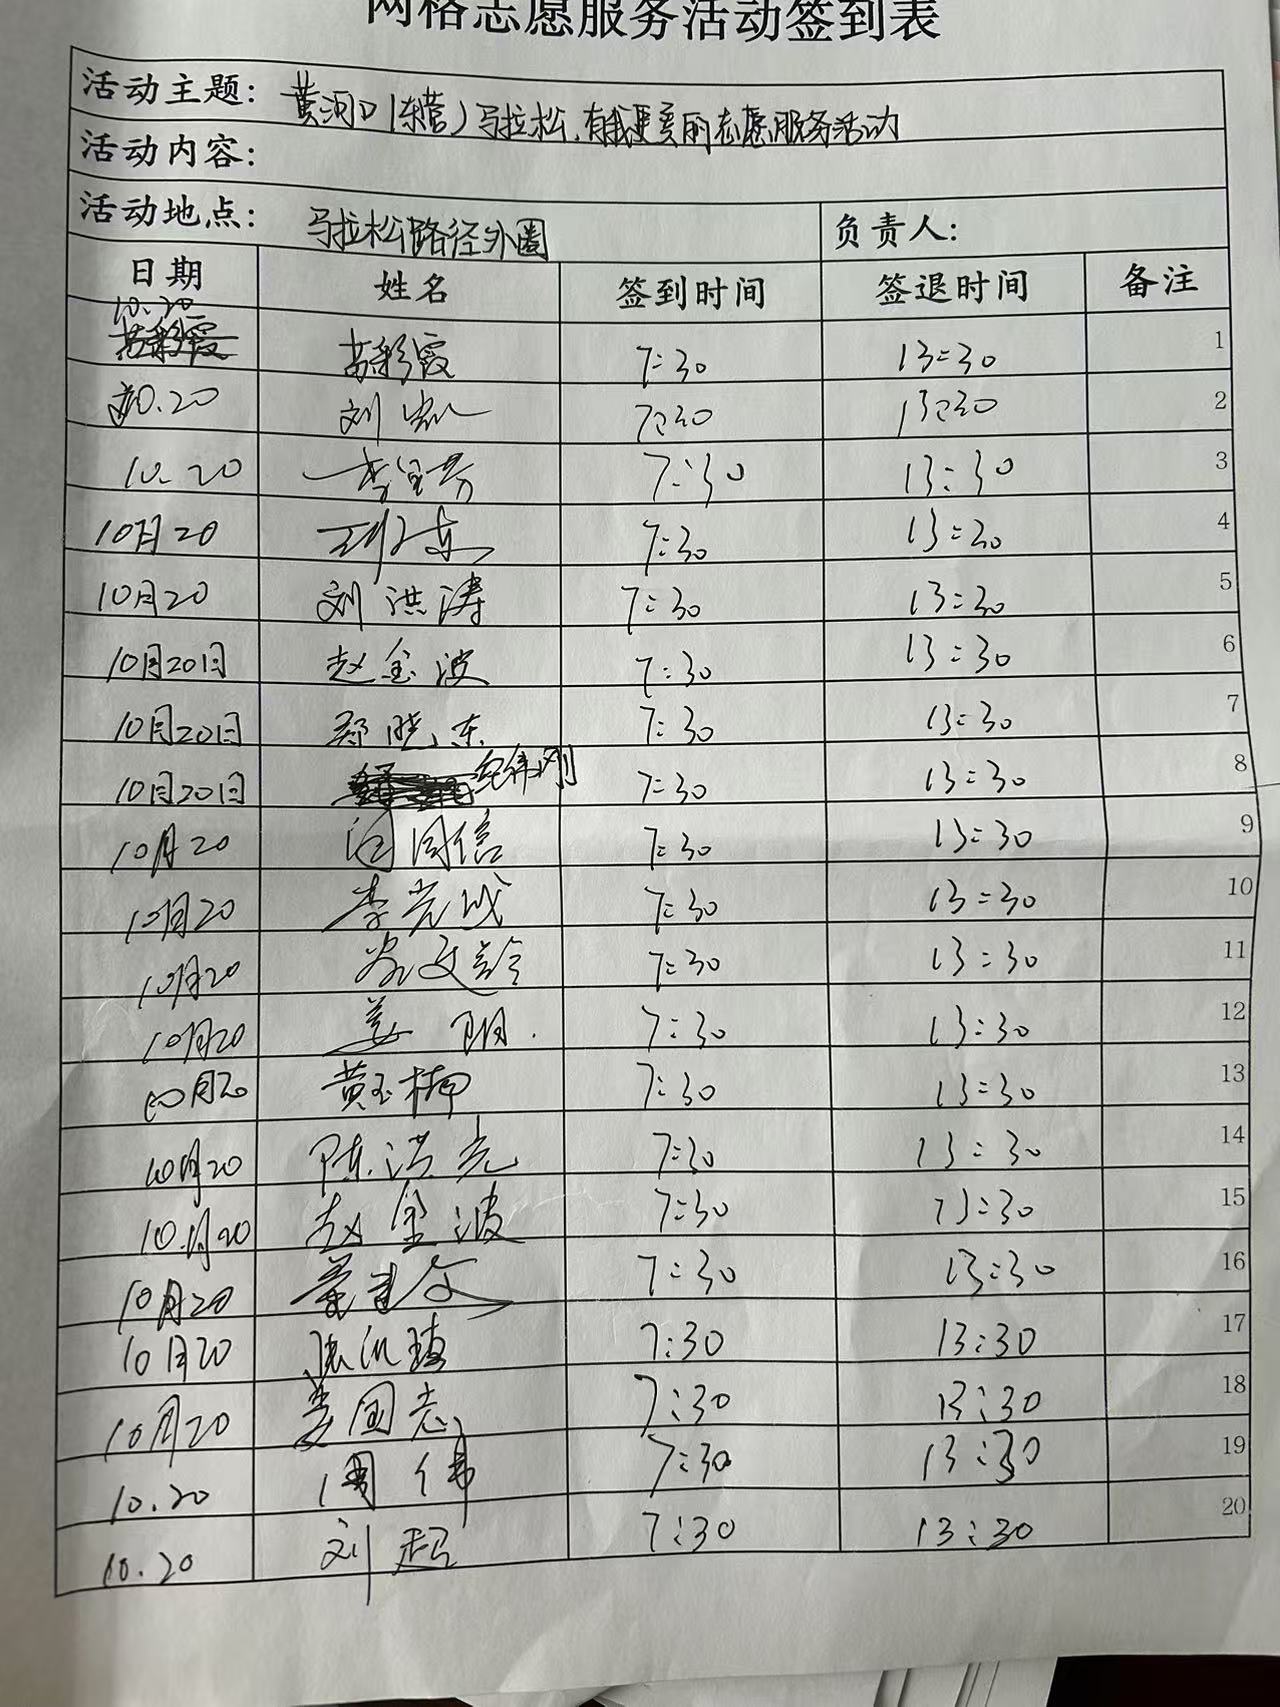 网格志愿服务活动签到表
活动主题: 黄河口(东营)马拉松,有我更美丽志愿服务活动
活动内容:
活动地点: 马拉松路径外圈 负责人:
日期 姓名 签到时间 签退时间 备注
10.20 苏彩霞 7:30 13:30 1
10.20 刘 7:30 13:30 2
10.20 李 7:30 13:30 3
10月20 7:30 13:30 4
10月20 刘洪涛 7:30 13:30 5
10月20日 赵金波 7:30 13:30 6
10月20日 郑晓东 7:30 13:30 7
10月20日 纪伟刚 7:30 13:30 8
10月20 闫同信 7:30 13:30 9
10月20 李光成 7:30 13:30 10
10月20 文龄 7:30 13:30 11
10月20 姜明 7:30 13:30 12
10月20 黄玉柳 7:30 13:30 13
10月20 陈洪光 7:30 13:30 14
10.月20 赵金波 7:30 13:30 15
10月20 董 7:30 13:30 16
10月20 张 7:30 13:30 17
10月20 姜国志 7:30 13:30 18
10.20 周伟 7:30 13:30 19
10.20 刘超 7:30 13:30 20